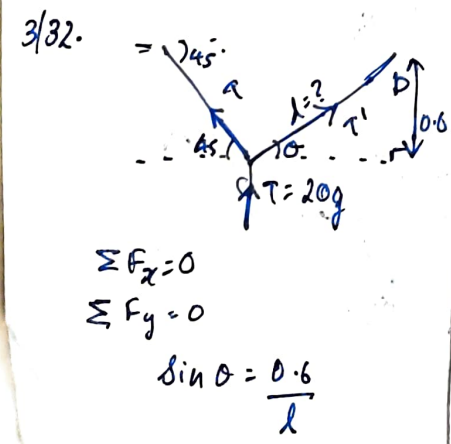 3/32.
= )45°
a
l=?
T'
D
0.6
45
θ
T = 20g
ΣFx=0
ΣFy=0
Sin θ = 0.6/l